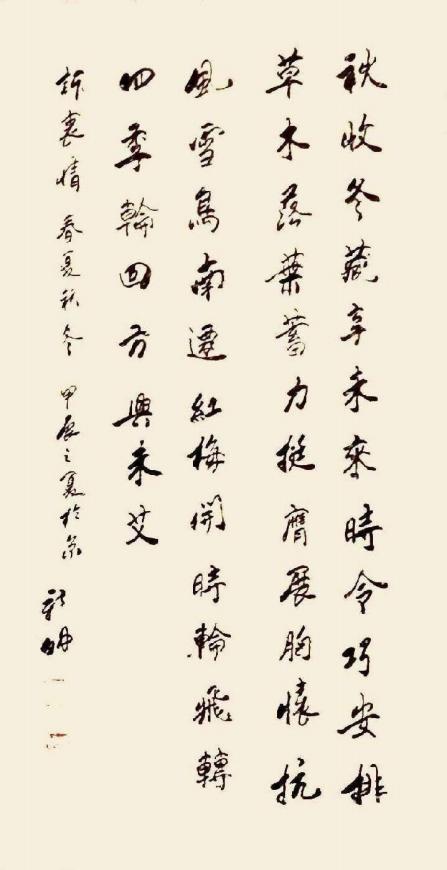 秋收冬藏享未來時令巧安排
草木落葉蓄力挺膺展胸懷抗
風雪鳥南遷紅梅開時輪飛轉
四季輪回方興未艾
訴衷情 春夏秋冬 甲辰之夏於京